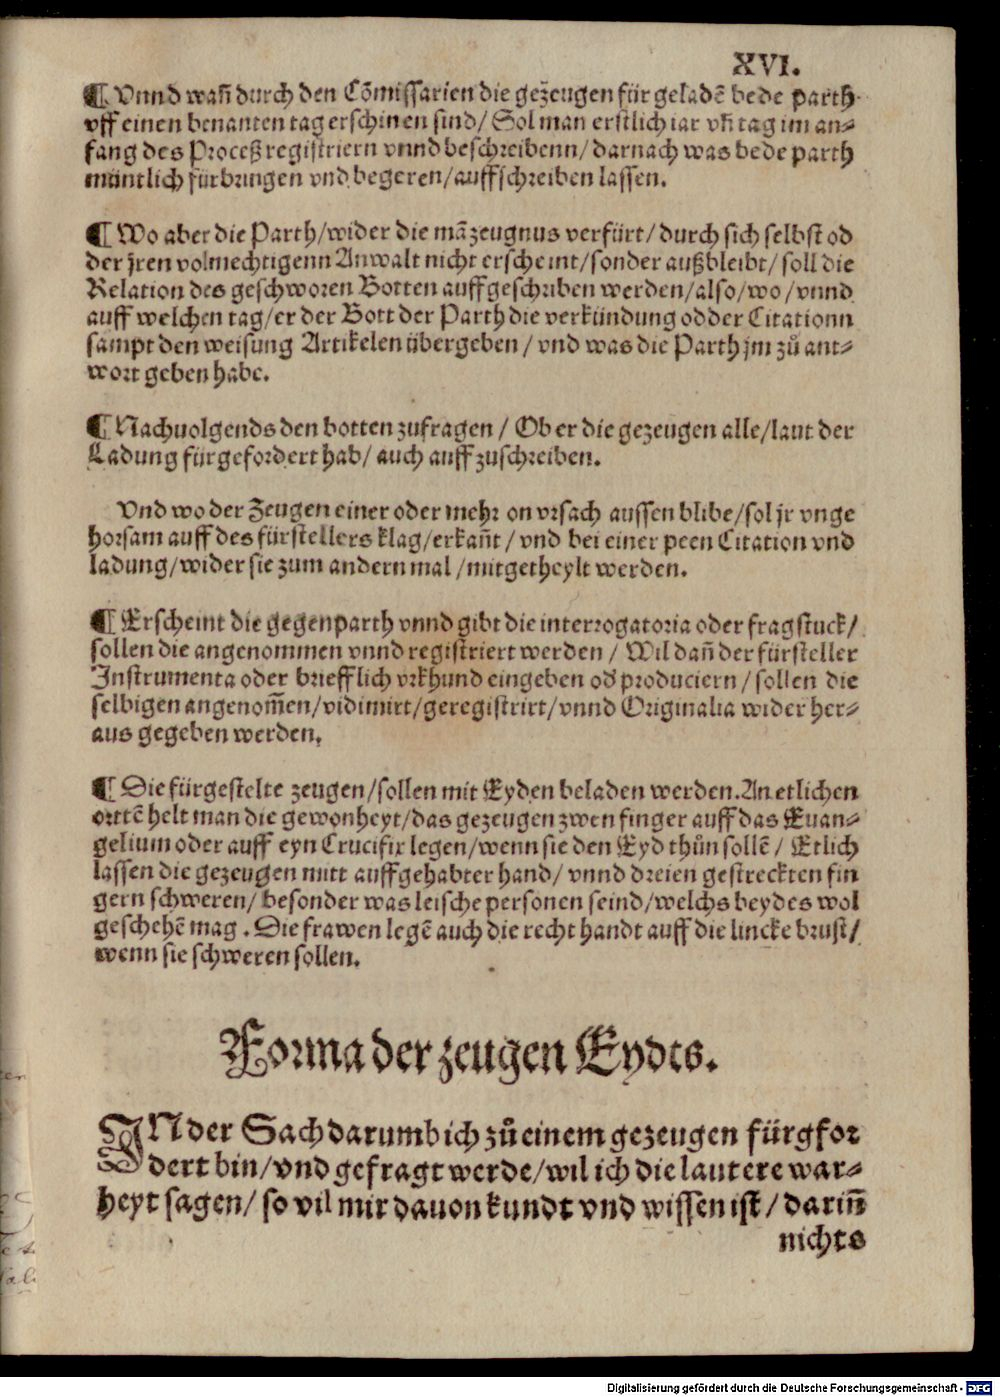 XVI.
¶ Vnnd wañ durch den Cõmissarien die gezeugen für geladẽ bede parth
vff einen benanten tag erschinen sind/ Sol man erstlich iar vñ tag im an⸗
fang des Proceß registriern vnnd beschreibenn/ darnach was bede parth
müntlich fürbringen vnd begeren/ auffschreiben lassen.
¶ Wo aber die Parth/ wider die mã zeugnus verfürt/ durch sich selbst od
der jren volmechtigenn Anwalt nicht erscheint/ sonder außbleibt/ soll die
Relation des geschworen Botten auffgeschriben werden/ also/ wo/ vnnd
auff welchen tag/ er der Bott der Parth die verkündung odder Citationn
sampt den weisung Artikelen übergeben/ vnd was die Parth jm zů ant⸗
wort geben habe.
¶ Nachuolgends den botten zufragen/ Ob er die gezeugen alle/ laut der
Ladung fürgefordert hab/ auch auff zuschreiben.
Vnd wo der Zeugen einer oder mehr on vrsach aussen blibe/ sol jr vnge
horsam auff des fürstellers klag/ erkañt/ vnd bei einer peen Citation vnd
ladung/ wider sie zum andern mal/ mitgetheylt werden.
¶ Erscheint die gegenparth vnnd gibt die interrogatoria oder fragstuck/
sollen die angenommen vnnd registriert werden/ Wil dañ der fürsteller
Instrumenta oder briefflich vrkhund eingeben od produciern/ sollen die
selbigen angenom̃en/ vidimirt/ geregistrirt/ vnnd Originalia wider her⸗
aus gegeben werden.
¶ Die fürgestelte zeugen/ sollen mit Eyden beladen werden. An etlichen
orttẽ helt man die gewonheyt/ das gezeugen zwen finger auff das Euan⸗
gelium oder auff eyn Crucifix legen/ wenn sie den Eyd thůn sollẽ/ Etlich
lassen die gezeugen mitt auffgehabter hand/ vnnd dreien gestreckten fin
gern schweren/ besonder was leische personen seind/ welchs beydes wol
geschehẽ mag. Die frawen legẽ auch die recht handt auff die lincke brust/
wenn sie schweren sollen.
Forma der zeugen Eydts.
IN der Sach darumb ich zů einem gezeugen fürgfor
dert bin/ vnd gefragt werde/ wil ich die lautere war⸗
heyt sagen/ so vil mir dauon kundt vnd wissen ist/ dariñ
nichts
Digitalisierung gefördert durch die Deutsche Forschungsgemeinschaft - DFG